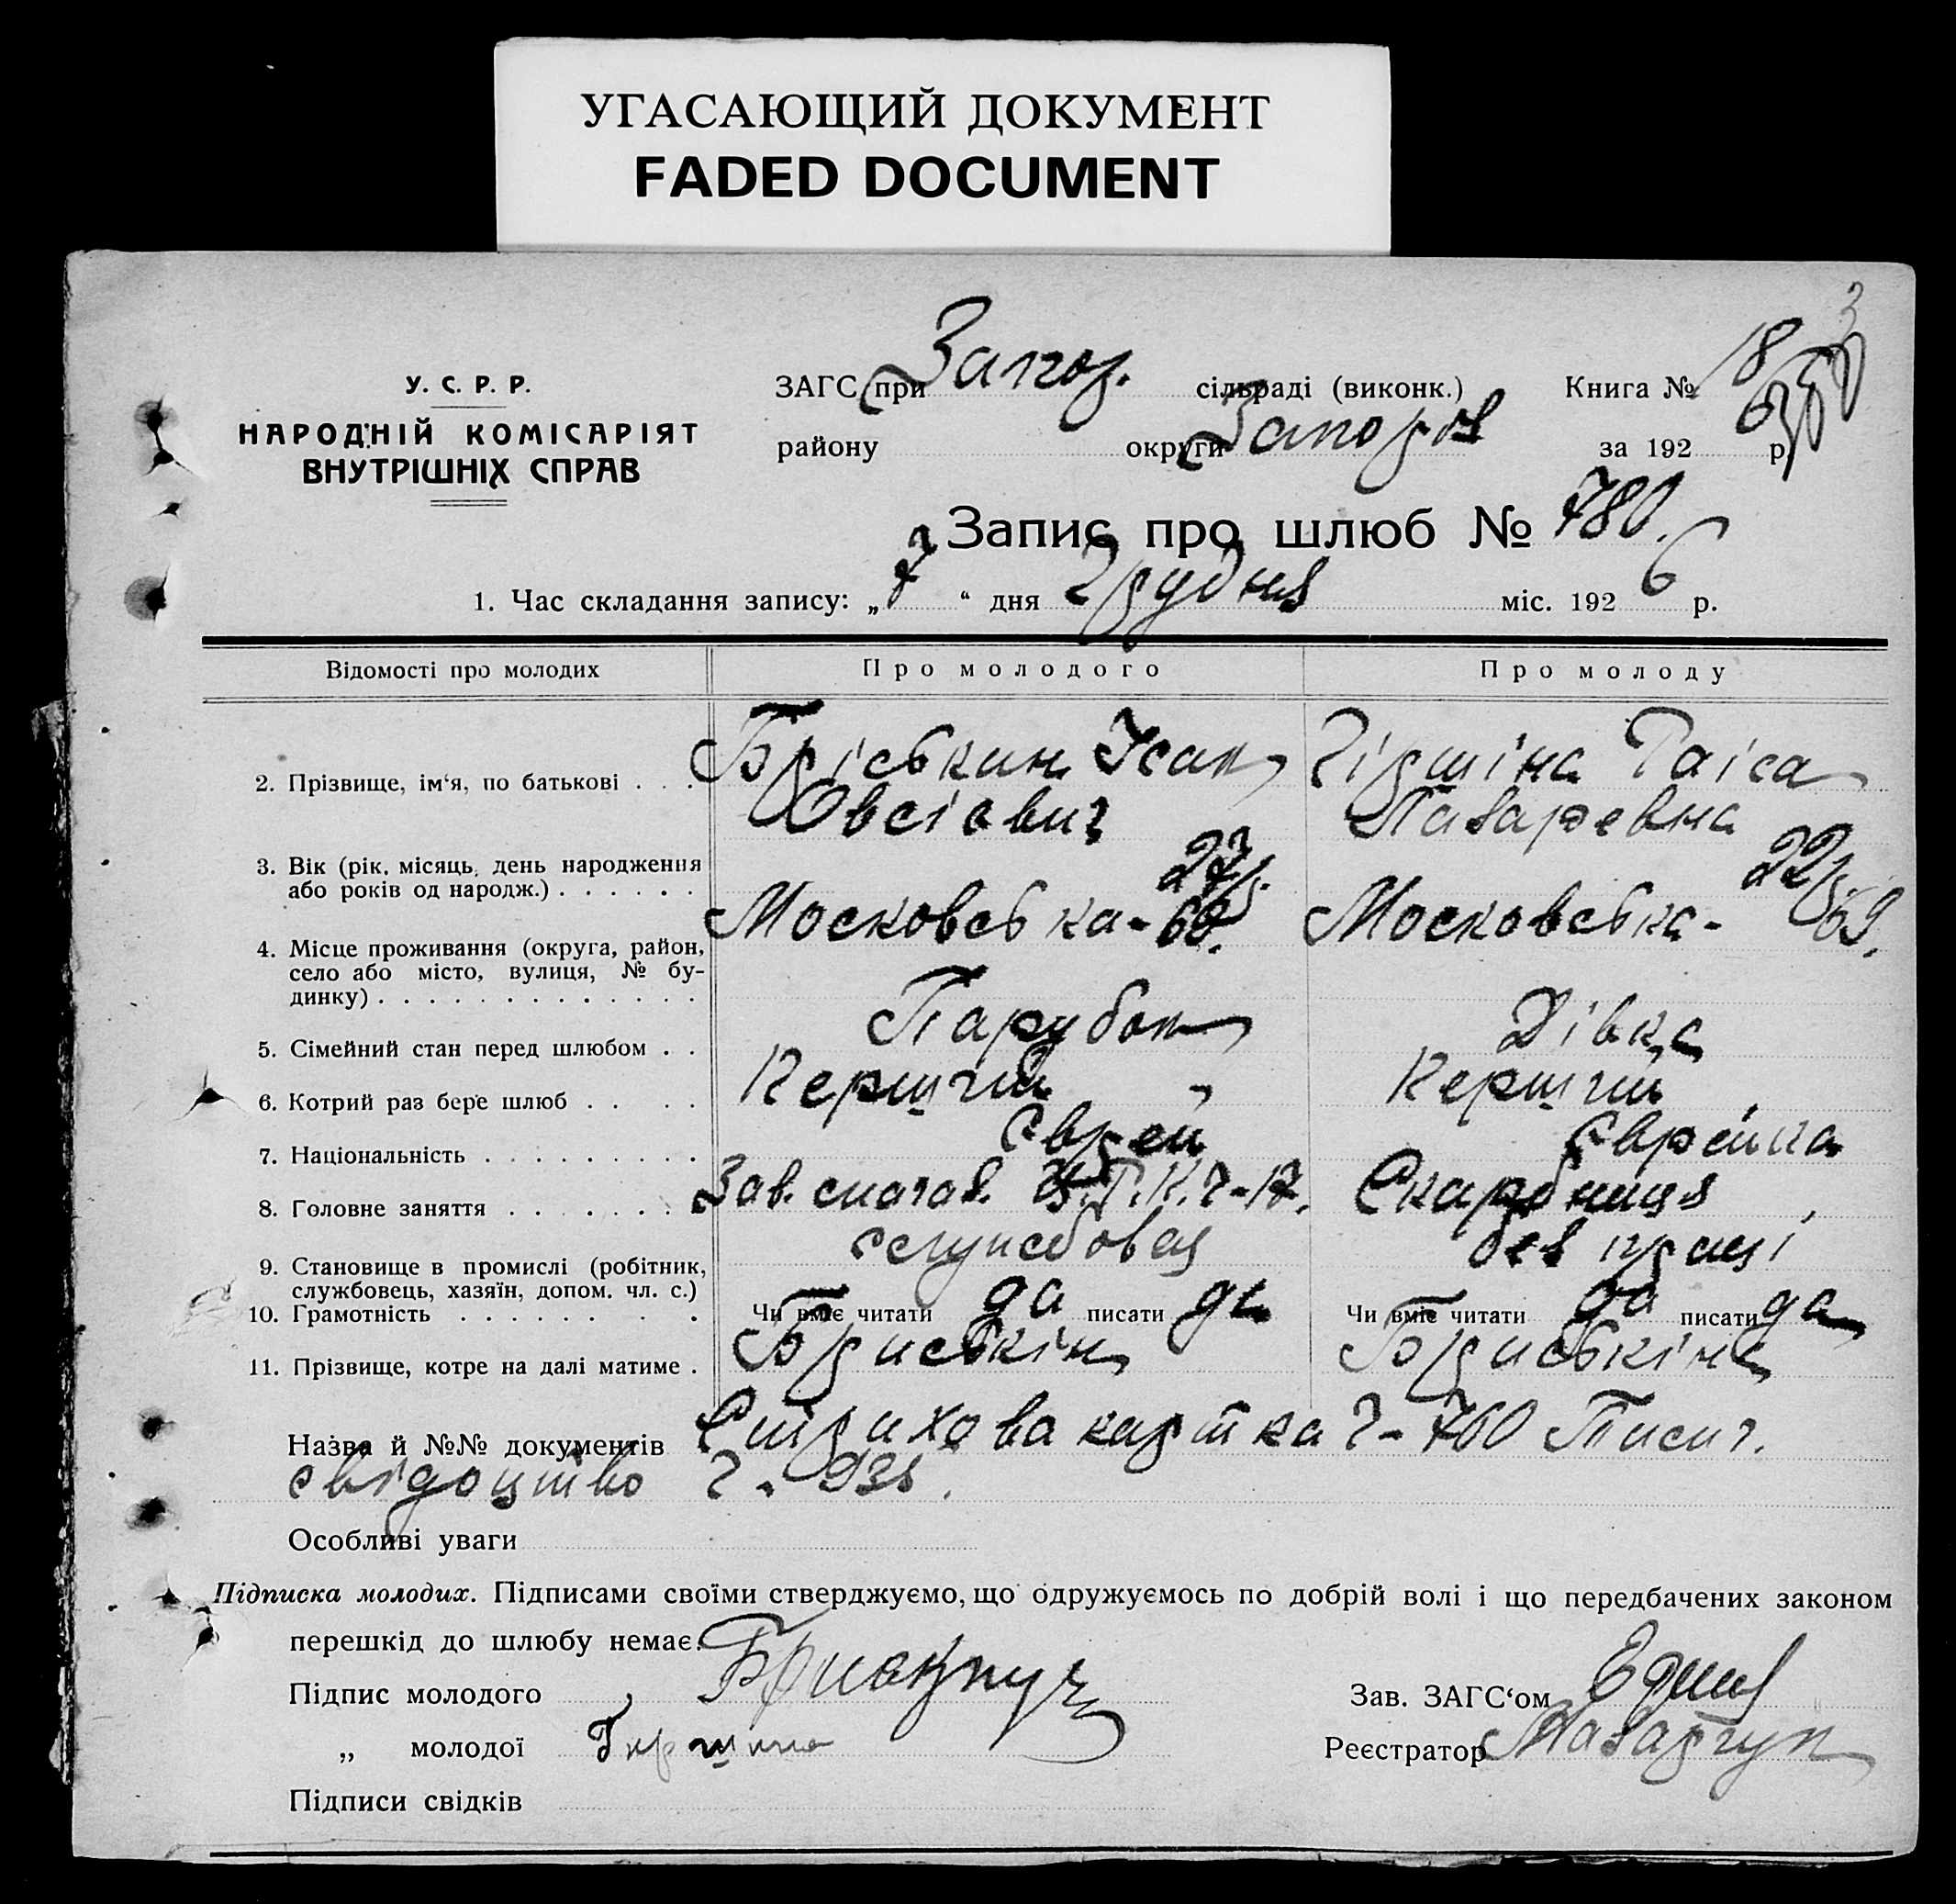 УГАСАЮЩИЙ ДОКУМЕНТ
FADED DOCUMENT
3
У. С. Р. Р.
НАРОДНІЙ КОМІСАРІЯТ
ВНУТРІШНІХ СПРАВ
ЗАГС при Запор. сільраді (виконк.) Книга № 18
району округи Запоріз за 192 6 р.
Запис про шлюб № 780.
1. Час складання запису: „ 7 “ дня Грудня міс. 192 6 р.
Відомості про молодих Про молодого Про молоду
2. Прізвище, ім‘я, по батькові . . . Бріськин Исак Гіршіна Раіса
Овсіович Лазаревна
3. Вік (рік, місяць, день народження 27 22
або років од народж.) . . . . . .
4. Місце проживання (округа, район, Московська - 69. Московська - 69.
село або місто, вулиця, № бу-
динку) . . . . . . . . . . . . .
5. Сімейний стан перед шлюбом . . Парубок Дівка
6. Котрий раз бере шлюб . . . . Перший Перший
7. Національність . . . . . . . . . Єврей Єврейка
8. Головне заняття . . . . . . . Зав. Р.К. Ч-17. Скарбниця
9. Становище в промислі (робітник, службовець без праці
службовець, хазяїн, допом. чл. с.)
10. Грамотність . . . . . . . . . Чи вміє читати да писати да Чи вміє читати да писати да
11. Прізвище, котре на далі матиме . Бриськін Бриськіна
Назва й №№ документів Страхова картка Ч - 760 Посич.
свідоцтво Ч -
Особливі уваги
Підписка молодих. Підписами своїми стверджуємо, що одружуємось по добрій волі і що передбачених законом
перешкід до шлюбу немає.
Підпис молодого Зав. ЗАГС‘ом
„ молодої Гиршина Реєстратор Назарчук
Підписи свідків